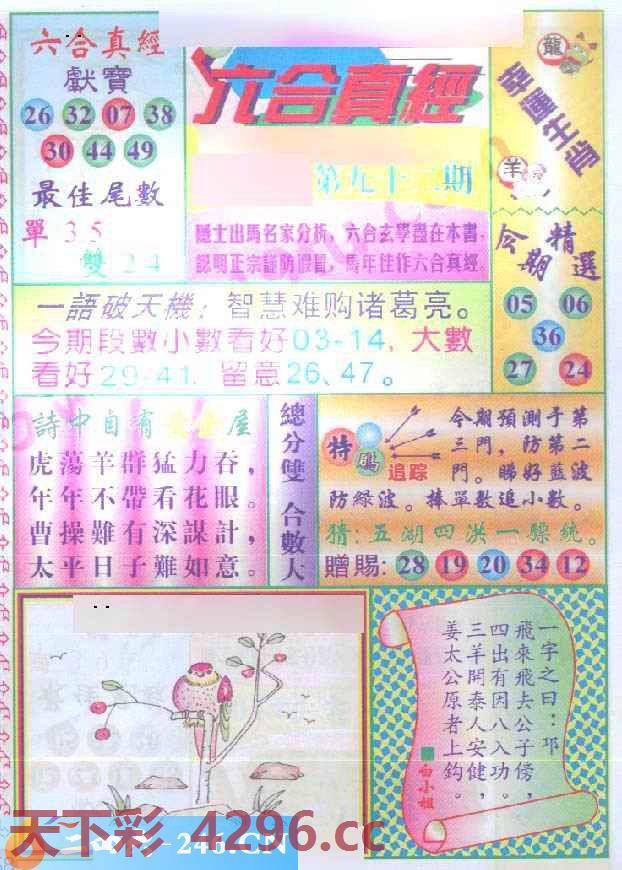 六合真經
獻寶
26 32 07 38
30 44 49
最佳尾數
單 3 5
雙 2 4
六合真經
第九十二期
隱士出馬名家分析，六合玄學盡在本書，
認明正宗謹防假冒，馬年佳作六合真經。
龍
幸運生肖
羊
今期
精選
05 06
36
27 24
一語破天機：智慧难购诸葛亮。
今期段數小數看好03-14，大數
看好29-41，留意26、47。
詩中自有
屋
虎蕩羊群猛力吞，
年年不帶看花眼。
曹操難有深謀計，
太平日子難如意。
總分雙 合數大
特
碼
追踪
今期預測于第
三門，防第二
門。睇好藍波
防綠波。捧單數追小數。
猜：五湖四洪一驟統。
贈賜：28 19 20 34 12
一字之曰：邛
飛來飛去公子傍，
四出有因八入功。
三羊開泰人安健，
姜太公原者上鈎。
白小姐
天下彩 4296.cc
246.CN